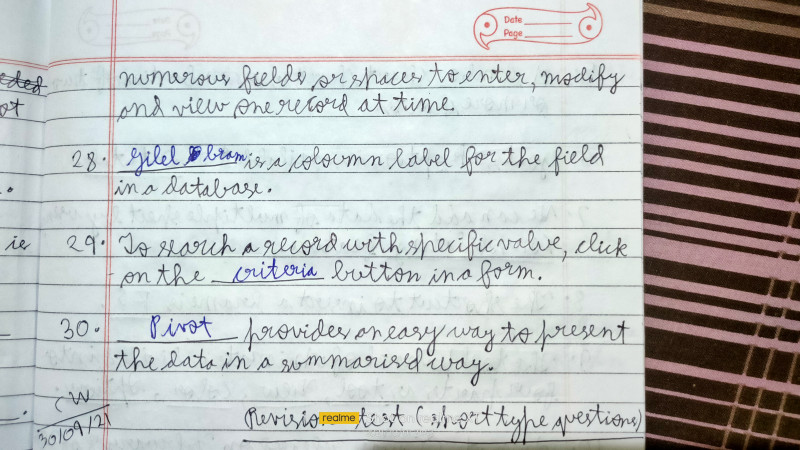 Date
Page
eded
ot
numerous fields or spaces to enter, modify
and view one record at time.
28. name is a coloumn label for the field
in a database.
ie
29. To search a record with specific value, click
on the criteria button in a form.
30. Pivot provides an easy way to present
the data in a summarised way.
CW
30/09/21
Revision test (short type questions)
realme